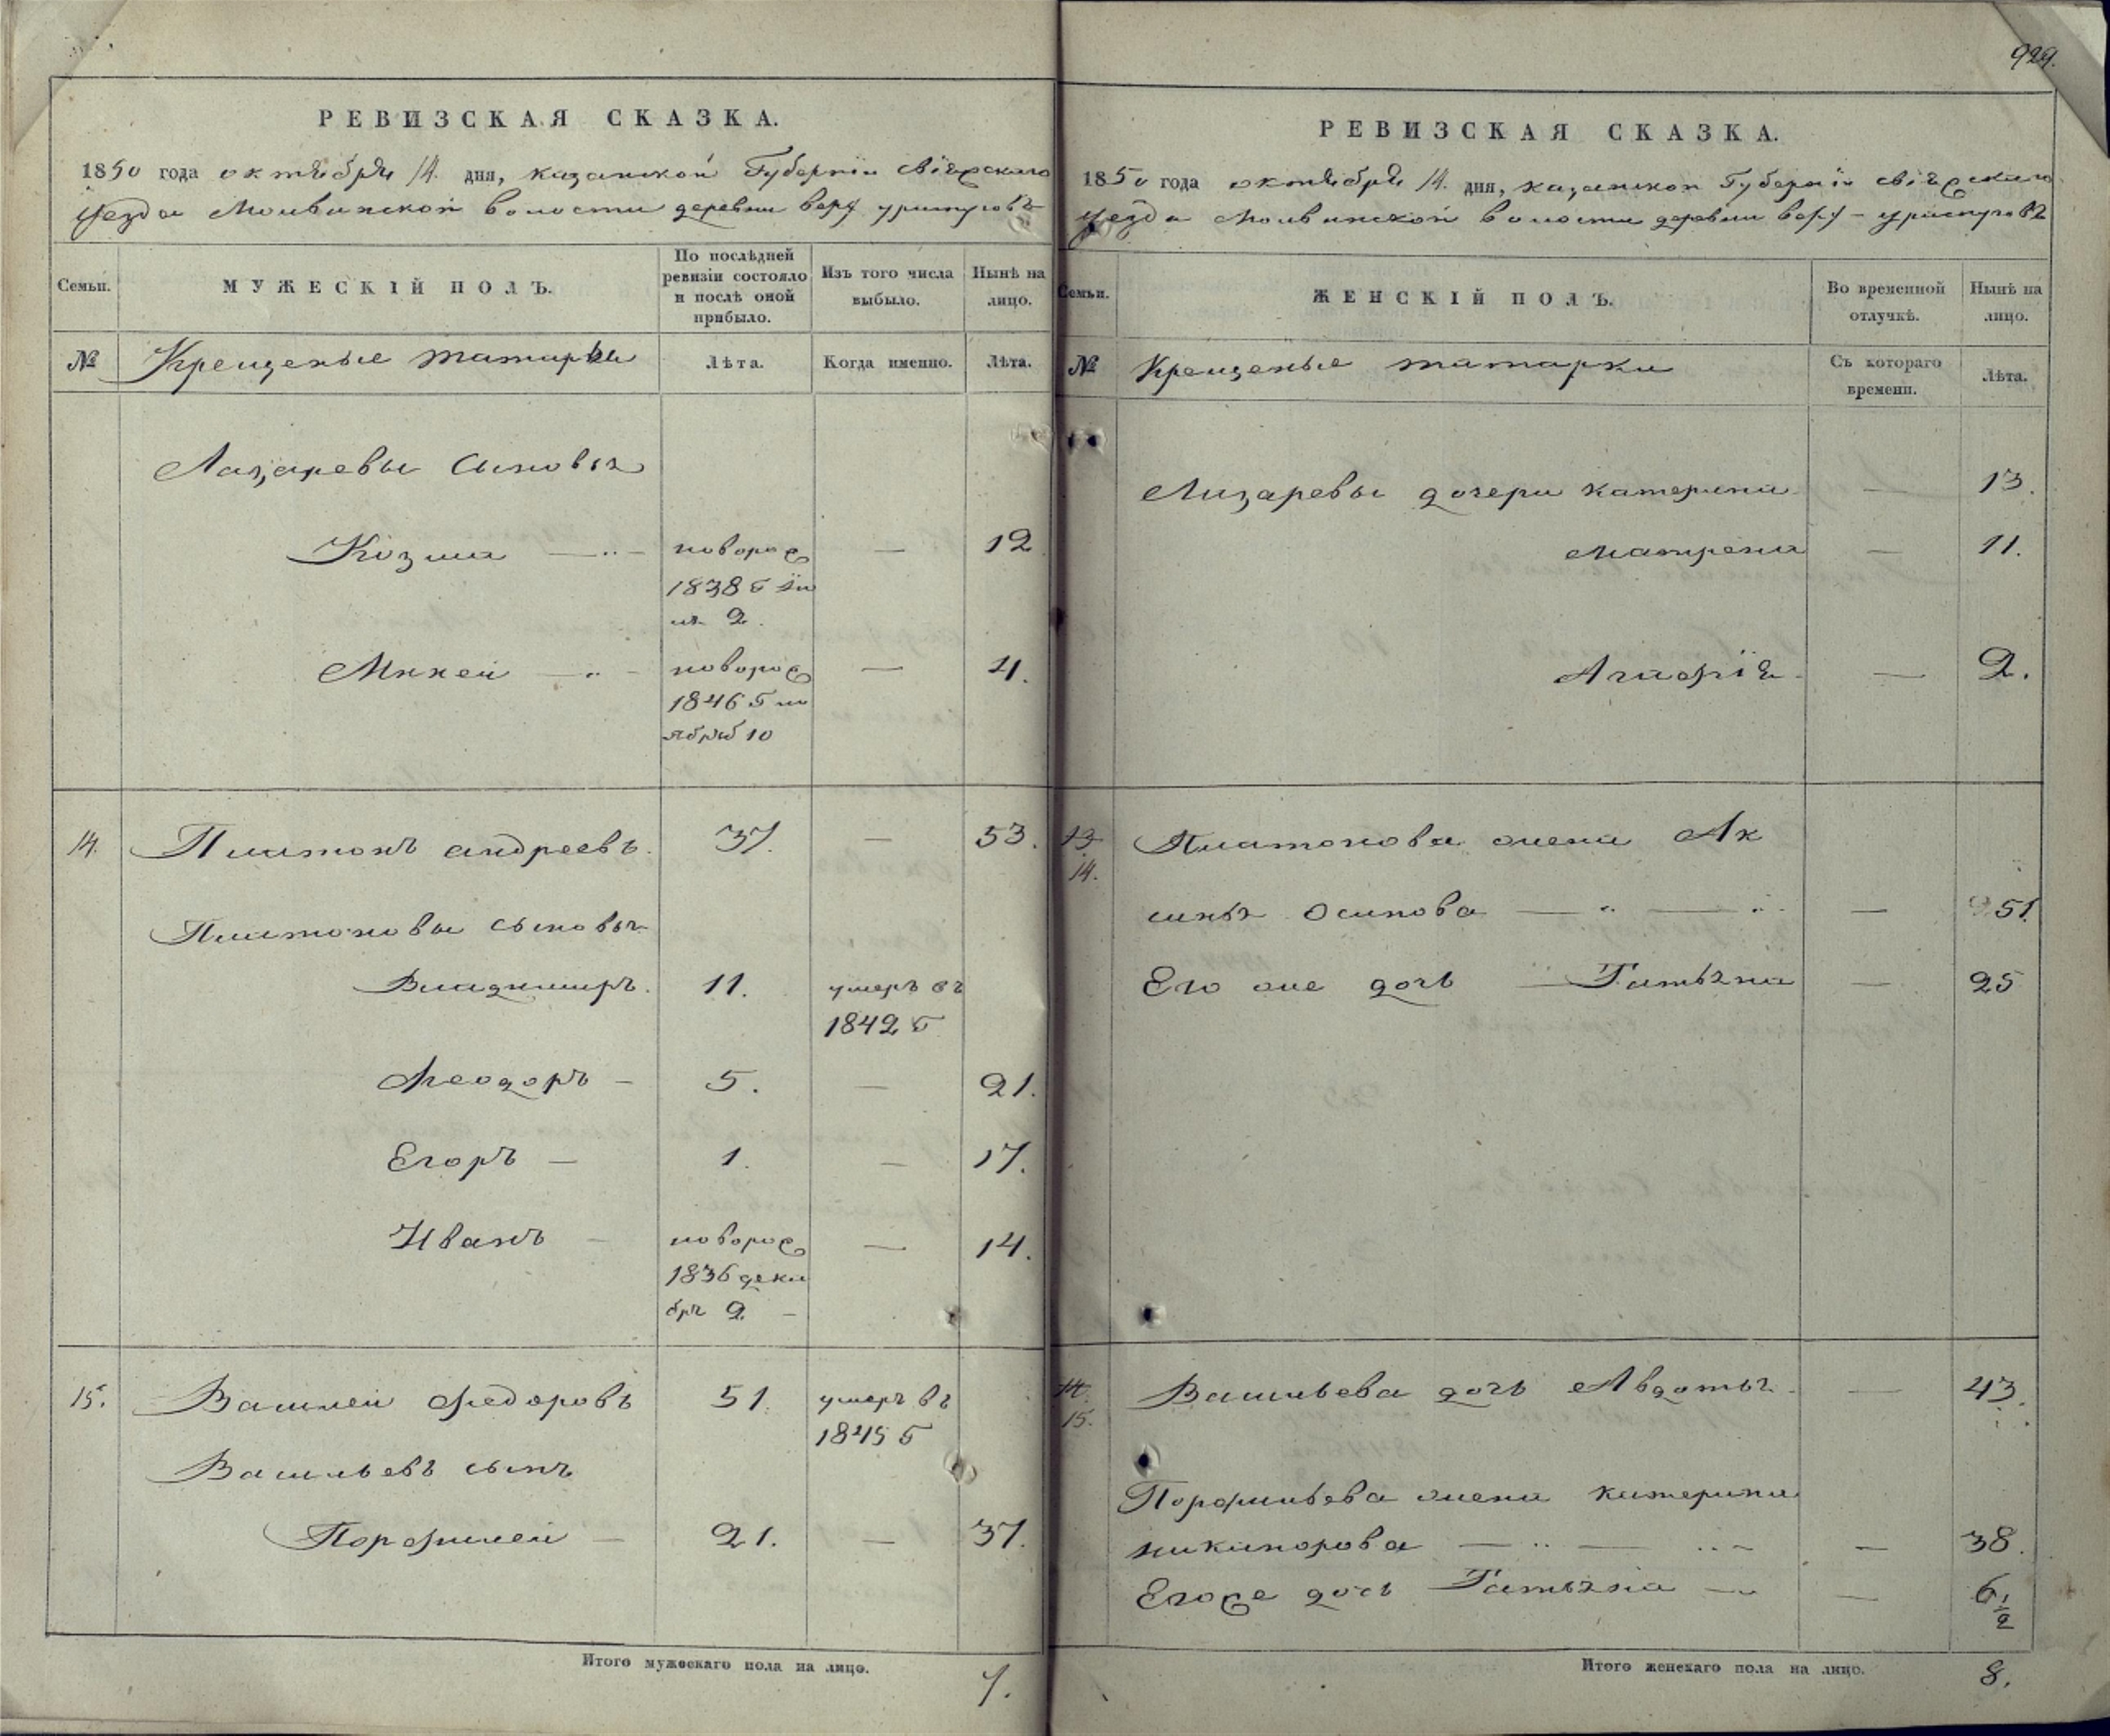 929.
РЕВИЗСКАЯ СКАЗКА.
1850 года октября 14 дня, казанской Губернїи свіяжскаго
уезда Молвинской волости деревни верх уристуговъ
Семьи.
МУЖЕСКІЙ ПОЛЪ.
По послѣдней ревизіи состояло и послѣ оной прибыло.
Изъ того числа выбыло.
Нынѣ на лицо.
№
Крещеные татары
Лѣта.
Когда именно.
Лѣта.
Лазаревы сыновья
Козма новорож — 12
1838 г ію
ля 2.
Михей новорож — 4.
1846 г но
ябръ 10
14. Платонъ андреевъ. 37. — 53.
Платоновы сыновья
Владимиръ. 11. умеръ въ
1842 г
Феодоръ — 5. — 21.
Егоръ — 1. — 17.
Иванъ — новорож — 14.
1836 дека
бря 2 —
15. Василей Федоровъ 51. умеръ въ
1845 г
Васильевъ сынъ
Порфилей — 21. — 37.
Итого мужескаго пола на лицо. 7.
РЕВИЗСКАЯ СКАЗКА.
1850 года октября 14. дня, казанской Губерніи свіяжскаго
уезда Молвинской волости деревни верх-уристуговъ
Семьи.
ЖЕНСКІЙ ПОЛЪ.
Во временной отлучкѣ.
Нынѣ на лицо.
№
Крещеные татарки
Съ котораго времени.
Лѣта.
Лазаревы дочери катерина — 13.
Матрена — 11.
Агафія — 2.
13
14.
Платонова жена Ак
синья Осипова — 51.
Его же дочь Татьяна — 25
14.
15.
Васильева дочь Авдотья — 43.
Порфильева жена катерина
никифорова — 38.
Егоже дочь Татьяна — 6 1/2
Итого женскаго пола на лицо. 8.